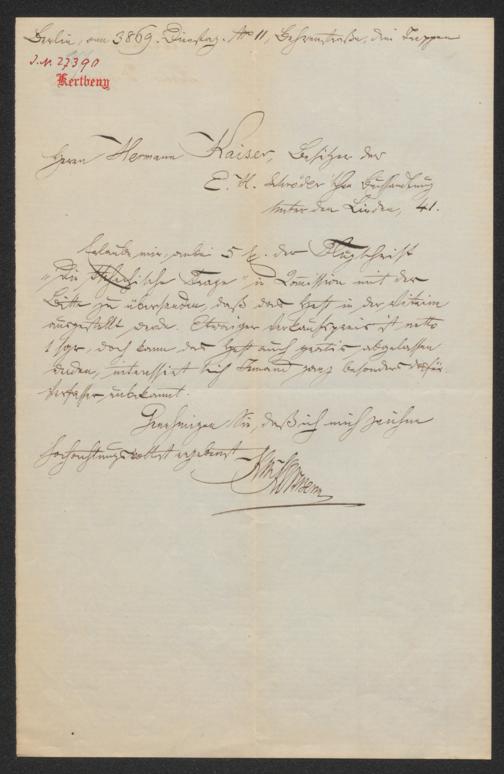 Berlin, am 3869. Dienstag. No 11, Behrenstraße, drei Treppen
J.N. 27390
Kertbeny
Herrn Hermann Kaiser, Besitzer der
E. H. Schröder'schen Buchhandlung
Unter den Linden, 41.
Erlaube mir, anbei 5 E. der Flugschrift
"Die Tschechische Frage" in Commission mit der
Bitte zu übersenden, daß das Heft in der Vitrine
ausgestellt werde. Etwaiger Verkaufspreis ist netto
1 sgr, doch kann das Heft auch gratis abgelassen
werden, interessirt sich Jemand ganz besonders dafür.
Verfasser unbekannt.
Genehmigen Sie, daß ich mich zeichne
hochachtungsvollst ergebenst